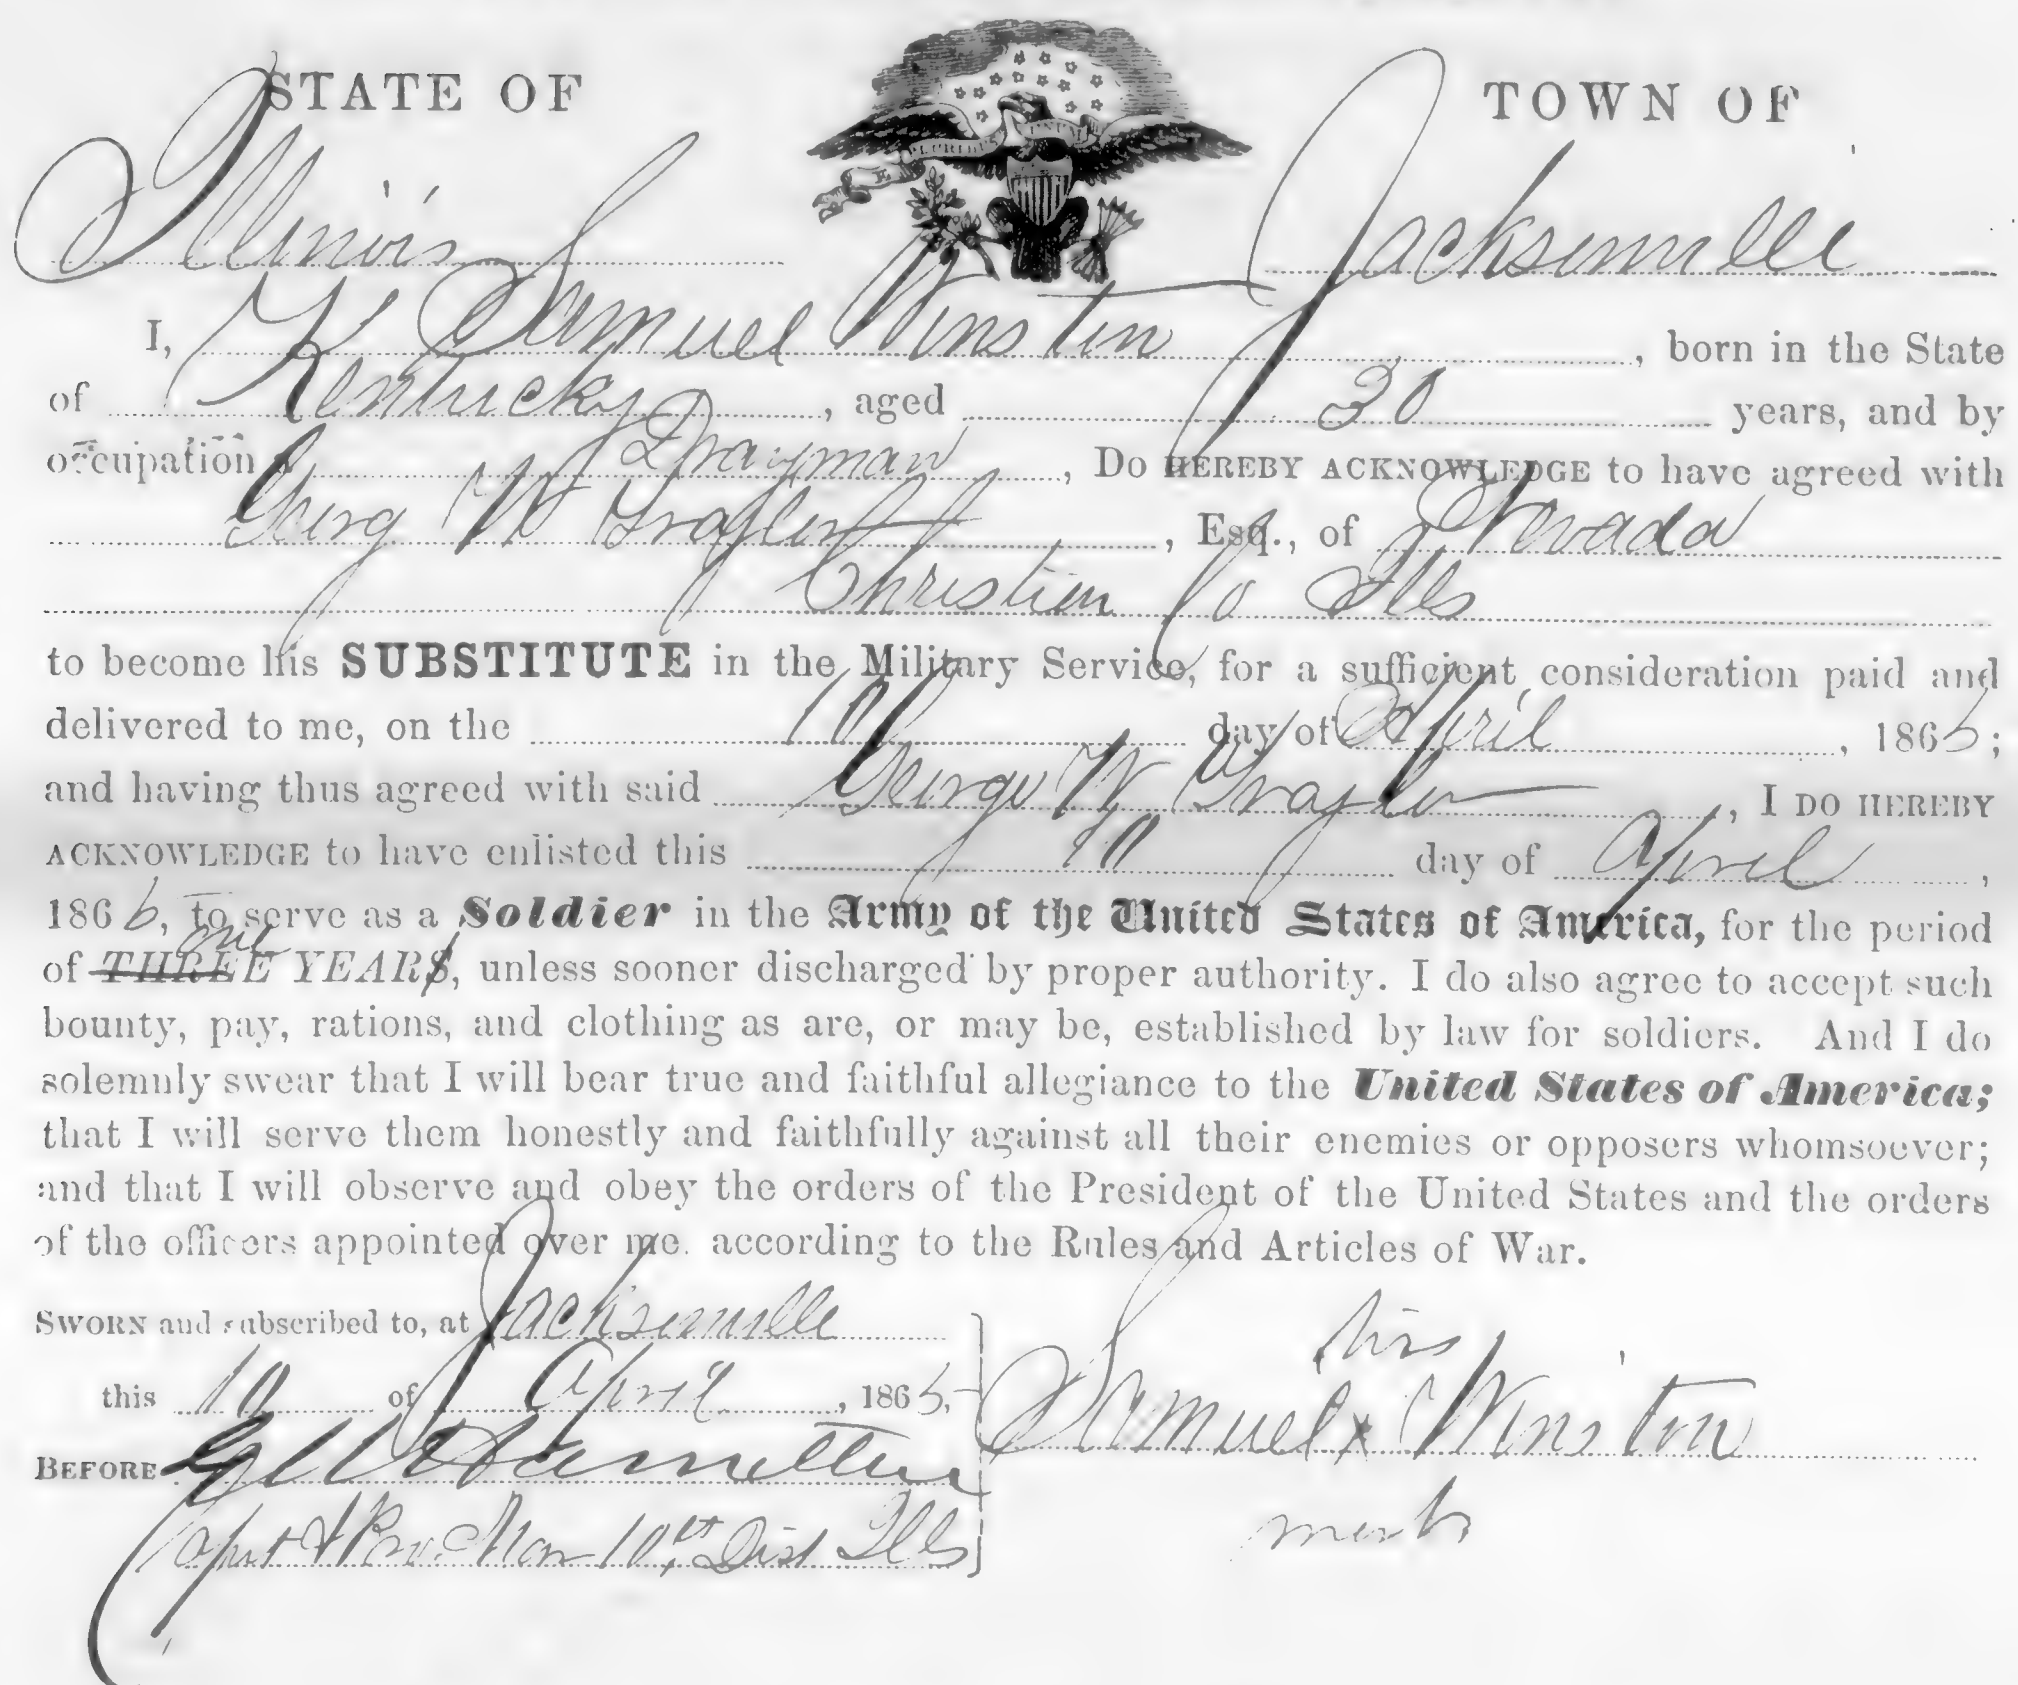 STATE OF
TOWN OF
E PLURIBUS UNUM
Illinois
Jacksonville
I, Samuel Winston, born in the State
of Kentucky, aged 30 years, and by
occupation Drayman, DO HEREBY ACKNOWLEDGE to have agreed with
Georg W Traylor, Esq., of Nevada
Christian Co Ills
to become his SUBSTITUTE in the Military Service, for a sufficient consideration paid and
delivered to me, on the 10 day of April, 1865;
and having thus agreed with said George W Traylor, I DO HEREBY
ACKNOWLEDGE to have enlisted this 10 day of April,
1865, to serve as a Soldier in the Army of the United States of America, for the period
one
of THREE YEARS, unless sooner discharged by proper authority. I do also agree to accept such
bounty, pay, rations, and clothing as are, or may be, established by law for soldiers. And I do
solemnly swear that I will bear true and faithful allegiance to the United States of America;
that I will serve them honestly and faithfully against all their enemies or opposers whomsoever;
and that I will observe and obey the orders of the President of the United States and the orders
of the officers appointed over me. according to the Rules and Articles of War.
SWORN and subscribed to, at Jacksonville
this 10 of April, 1865,
his
Samuel x Winston
mark
BEFORE
Capt & Pro. Mar 10th Dist Ills